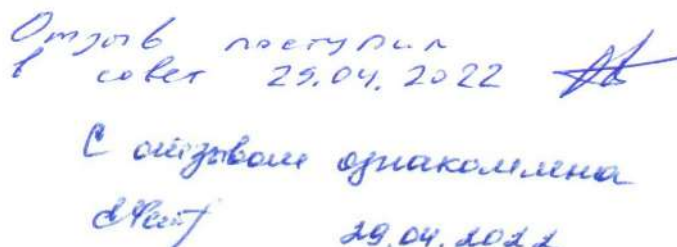 Отзыв поступил
в совет 29.04.2022
С отзывом ознакомлена
29.04.2022